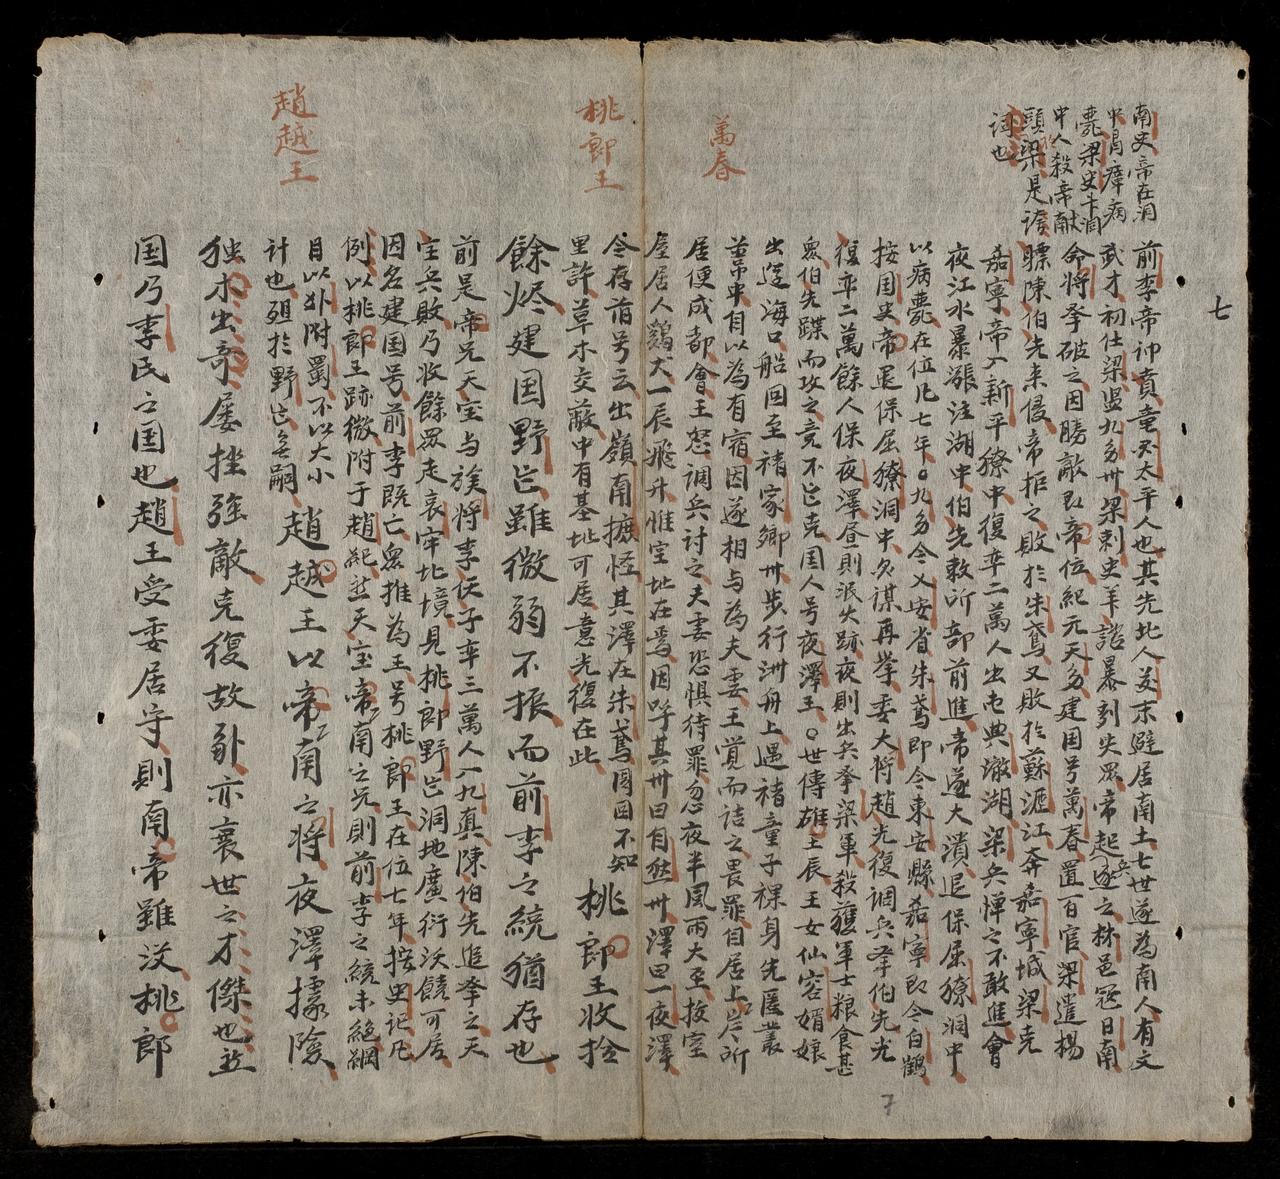 七
南史帝在洞
中冐瘴病
薨梁史卞洞
中人殺帝献
頭梁是誇
詞也
萬春
桃郎王
趙越王
前李帝諱賁竜兴太平人也其先北人苦末避居南土七世遂為南人有文
武才初仕梁监九多州梁刺史羊諮暴刻失眾帝起兵逐之林邑冦日南
命将李破之因勝敵即帝位紀元天多建国号萬春置百官梁遣楊
驃陳伯先来侵帝拒之敗於朱鳶又敗於蘇瀝江奔嘉寧城梁克
嘉寧帝入新平獠中復率二萬人出屯典澈湖梁兵憚之不敢進會
夜江水暴漲注湖中伯先敕所部前進帝遂大潰退保屈獠洞中
以病薨在位凡七年。九多今乂安省朱鳶即今東安縣嘉寧即今白鶴
按国史帝退保屈獠洞中久謀再挙委大将趙光復調兵拏伯先光
復率二萬餘人保夜澤昼則泯火跡夜則出兵拏梁軍殺獲軍士粮食甚
眾伯先蹀而攻之竟不能克国人号夜澤王。世傳雄王辰王女仙容媚娘
出遊海口船回至褚家鄉州步行洲舟上遇褚童子裸身先匿叢
葦帝中自以為有宿因遂相与為夫妻王覚而詰之畏罪自居上岸所
居便成都會王怒調兵討之夫妻恐惧待罪忽夜半風雨大至拔室
屋居人鷄犬一辰飛升惟空址在焉因呼其州曰自然州澤曰一夜澤
今存前号云出嶺南摭怪其澤在朱鳶周回不知
里許草木交蔽中有基址可居意光復在此
桃郎王收拾
餘烬建国野能雖微弱不振而前李之統猶存也
前是帝兄天宝与族将李佛子率三萬人入九真陳伯先追拏之天
宝兵敗乃收餘眾走哀牢北境見桃郎野能洞地廣衍沃饒可居
因名建国号前李既亡眾推為王号桃郎王在位七年按史記凡
例以桃郎王跡微附于趙紀然天宝帝南之兄則前李之統未絶綱
目以外附蜀不以大小
計也殂於野能無嗣
趙越王以帝南之将夜澤據険
独木出奇屡挫強敵克復故疆亦衰世之才傑也然
国乃李民之国也趙王受委居守則南帝雖没桃郎
7